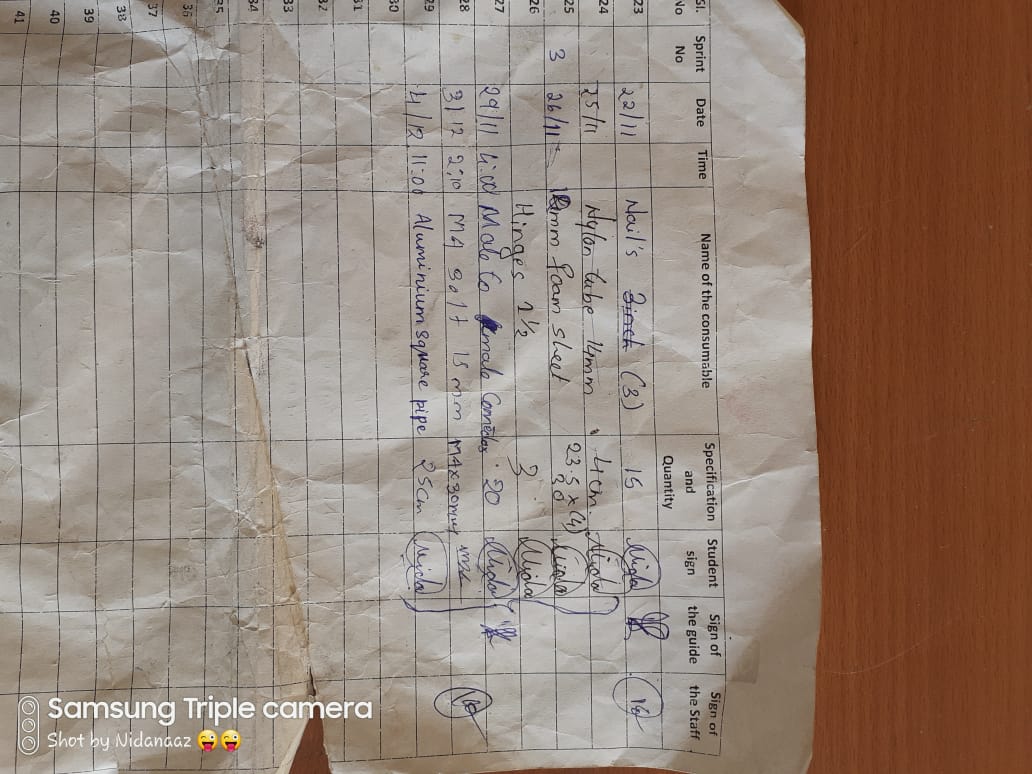 Sl. No Sprint No Date Time Name of the consumable Specification and Quantity Student sign Sign of the guide Sign of the Staff
23 22/11 Nail's 3inch (3) 15 Nida
24 25/11 Nylon tube 14mm 4cm. Nida
25 3 26/11 mm foam sheet 23.5 x (4) 30 Nida
26 Hinges 1 1/2 3 Nida
27 29/11 4:00 Male to female 20 Nida
28 3/12 2:10 M4 Bolt 15 mm M4x30mm
29 4/12 11:00 Aluminium square pipe 25cm Nida
30
31
32
33
34
35
36
37
38
39
40
41
Samsung Triple camera
Shot by Nidanaaz 😜😜